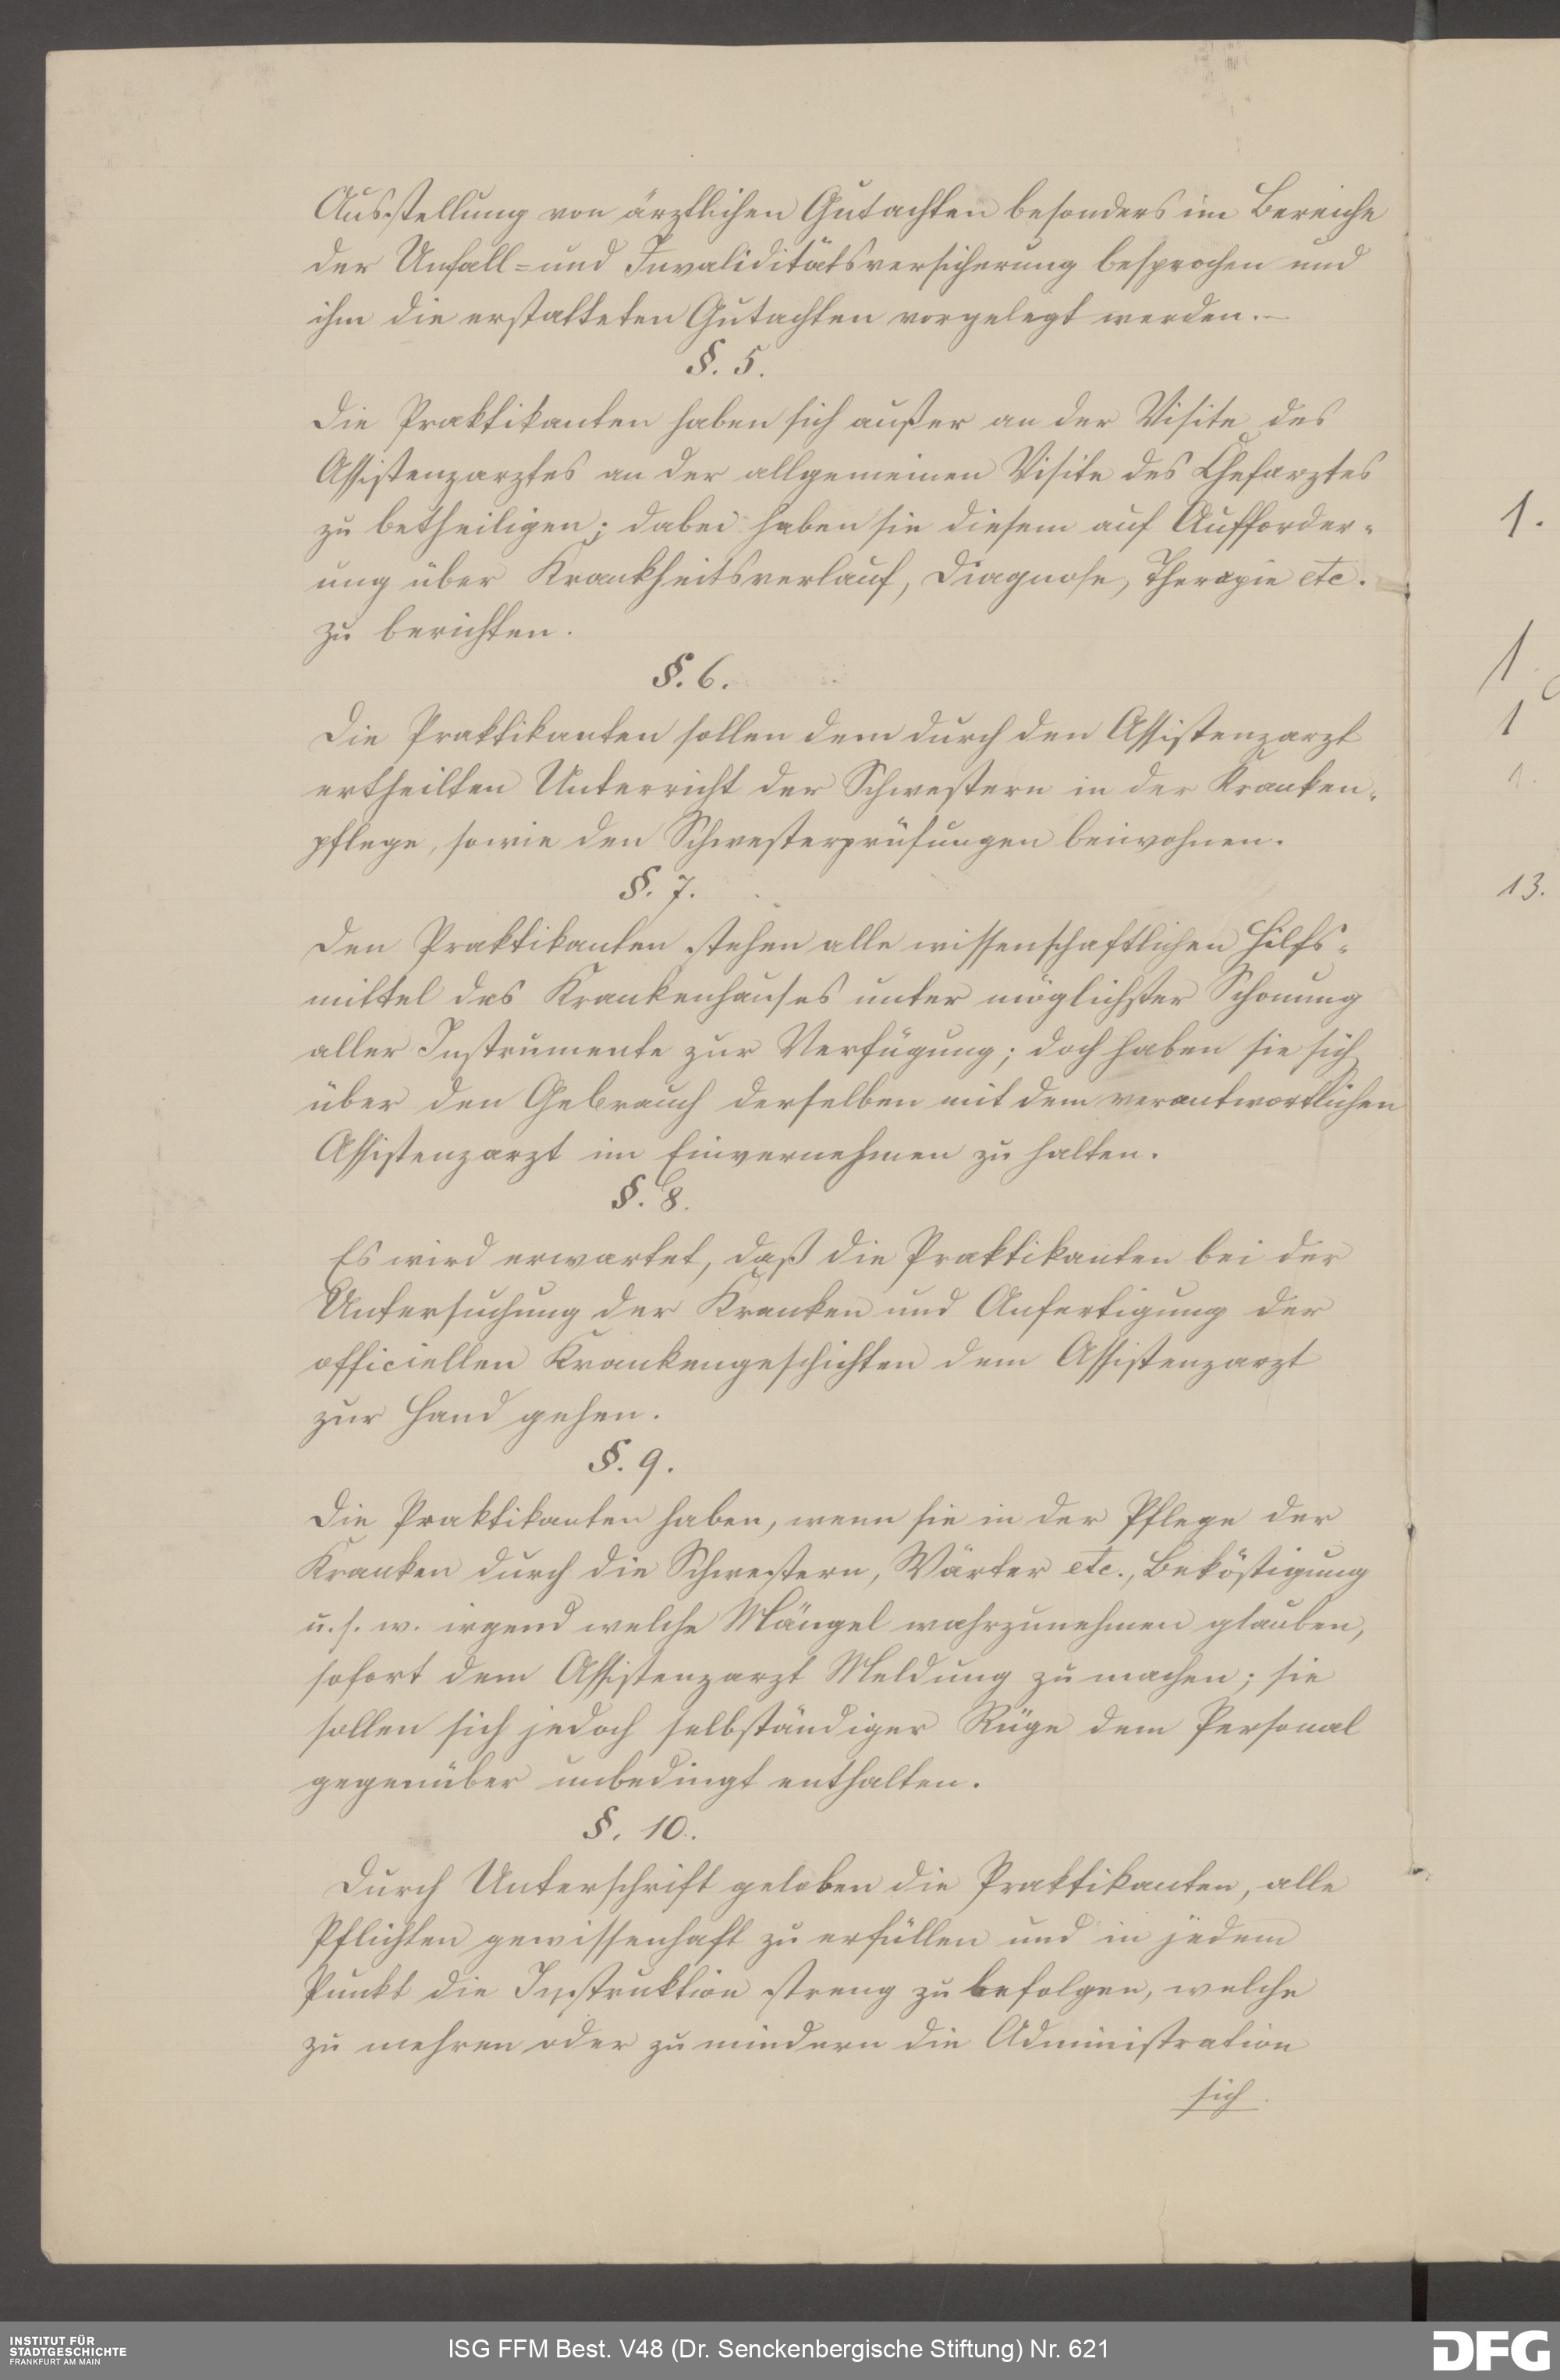 Ausstellung von ärztlichen Gutachten besonders im Bereiche
der Unfall= und Invaliditätsversicherung besprochen und
ihm die erstatteten Gutachten vorgelegt werden.—
§. 5.
Die Praktikanten haben sich außer an der Visite des
Assistenzarztes an der allgemeinen Visite des Chefarztes
zu betheiligen; dabei haben sie diesem auf Aufforder-
ung über Krankheitsverlauf, Diagnose, Therapie etc.
zu berichten.
§. 6.
Die Praktikanten sollen dem durch den Assistenzarzt
ertheilten Unterricht der Schwestern in der Kranken-
pflege, sowie den Schwesterprüfungen beiwohnen.
§. 7.
Den Praktikanten stehen alle wissenschaftlichen Hilfs-
mittel des Krankenhauses unter möglichster Schonung
aller Instrumente zur Verfügung; doch haben sie sich
über den Gebrauch derselben mit dem verantwortlichen
Assistenzarzt im Einvernehmen zu halten.
§. 8.
Es wird erwartet, daß die Praktikanten bei der
Untersuchung der Kranken und Anfertigung der
officiellen Krankengeschichten dem Assistenzarzt
zur Hand gehen.
§. 9.
Die Praktikanten haben, wenn sie in der Pflege der
Kranken durch die Schwestern, Wärter etc., Beköstigung
u. s. w. irgend welche Mängel wahrzunehmen glauben,
sofort dem Assistenzarzt Meldung zu machen; sie
sollen sich jedoch selbständiger Rüge dem Personal
gegenüber unbedingt enthalten.
§. 10.
Durch Unterschrift geloben die Praktikanten, alle
Pflichten gewissenhaft zu erfüllen und in jedem
Punkt die Instruktion streng zu befolgen, welche
zu mehren oder zu mindern die Administration
sich
1.
1.
1
1.
13.
INSTITUT FÜR
STADTGESCHICHTE
FRANKFURT AM MAIN
ISG FFM Best. V48 (Dr. Senckenbergische Stiftung) Nr. 621
DFG